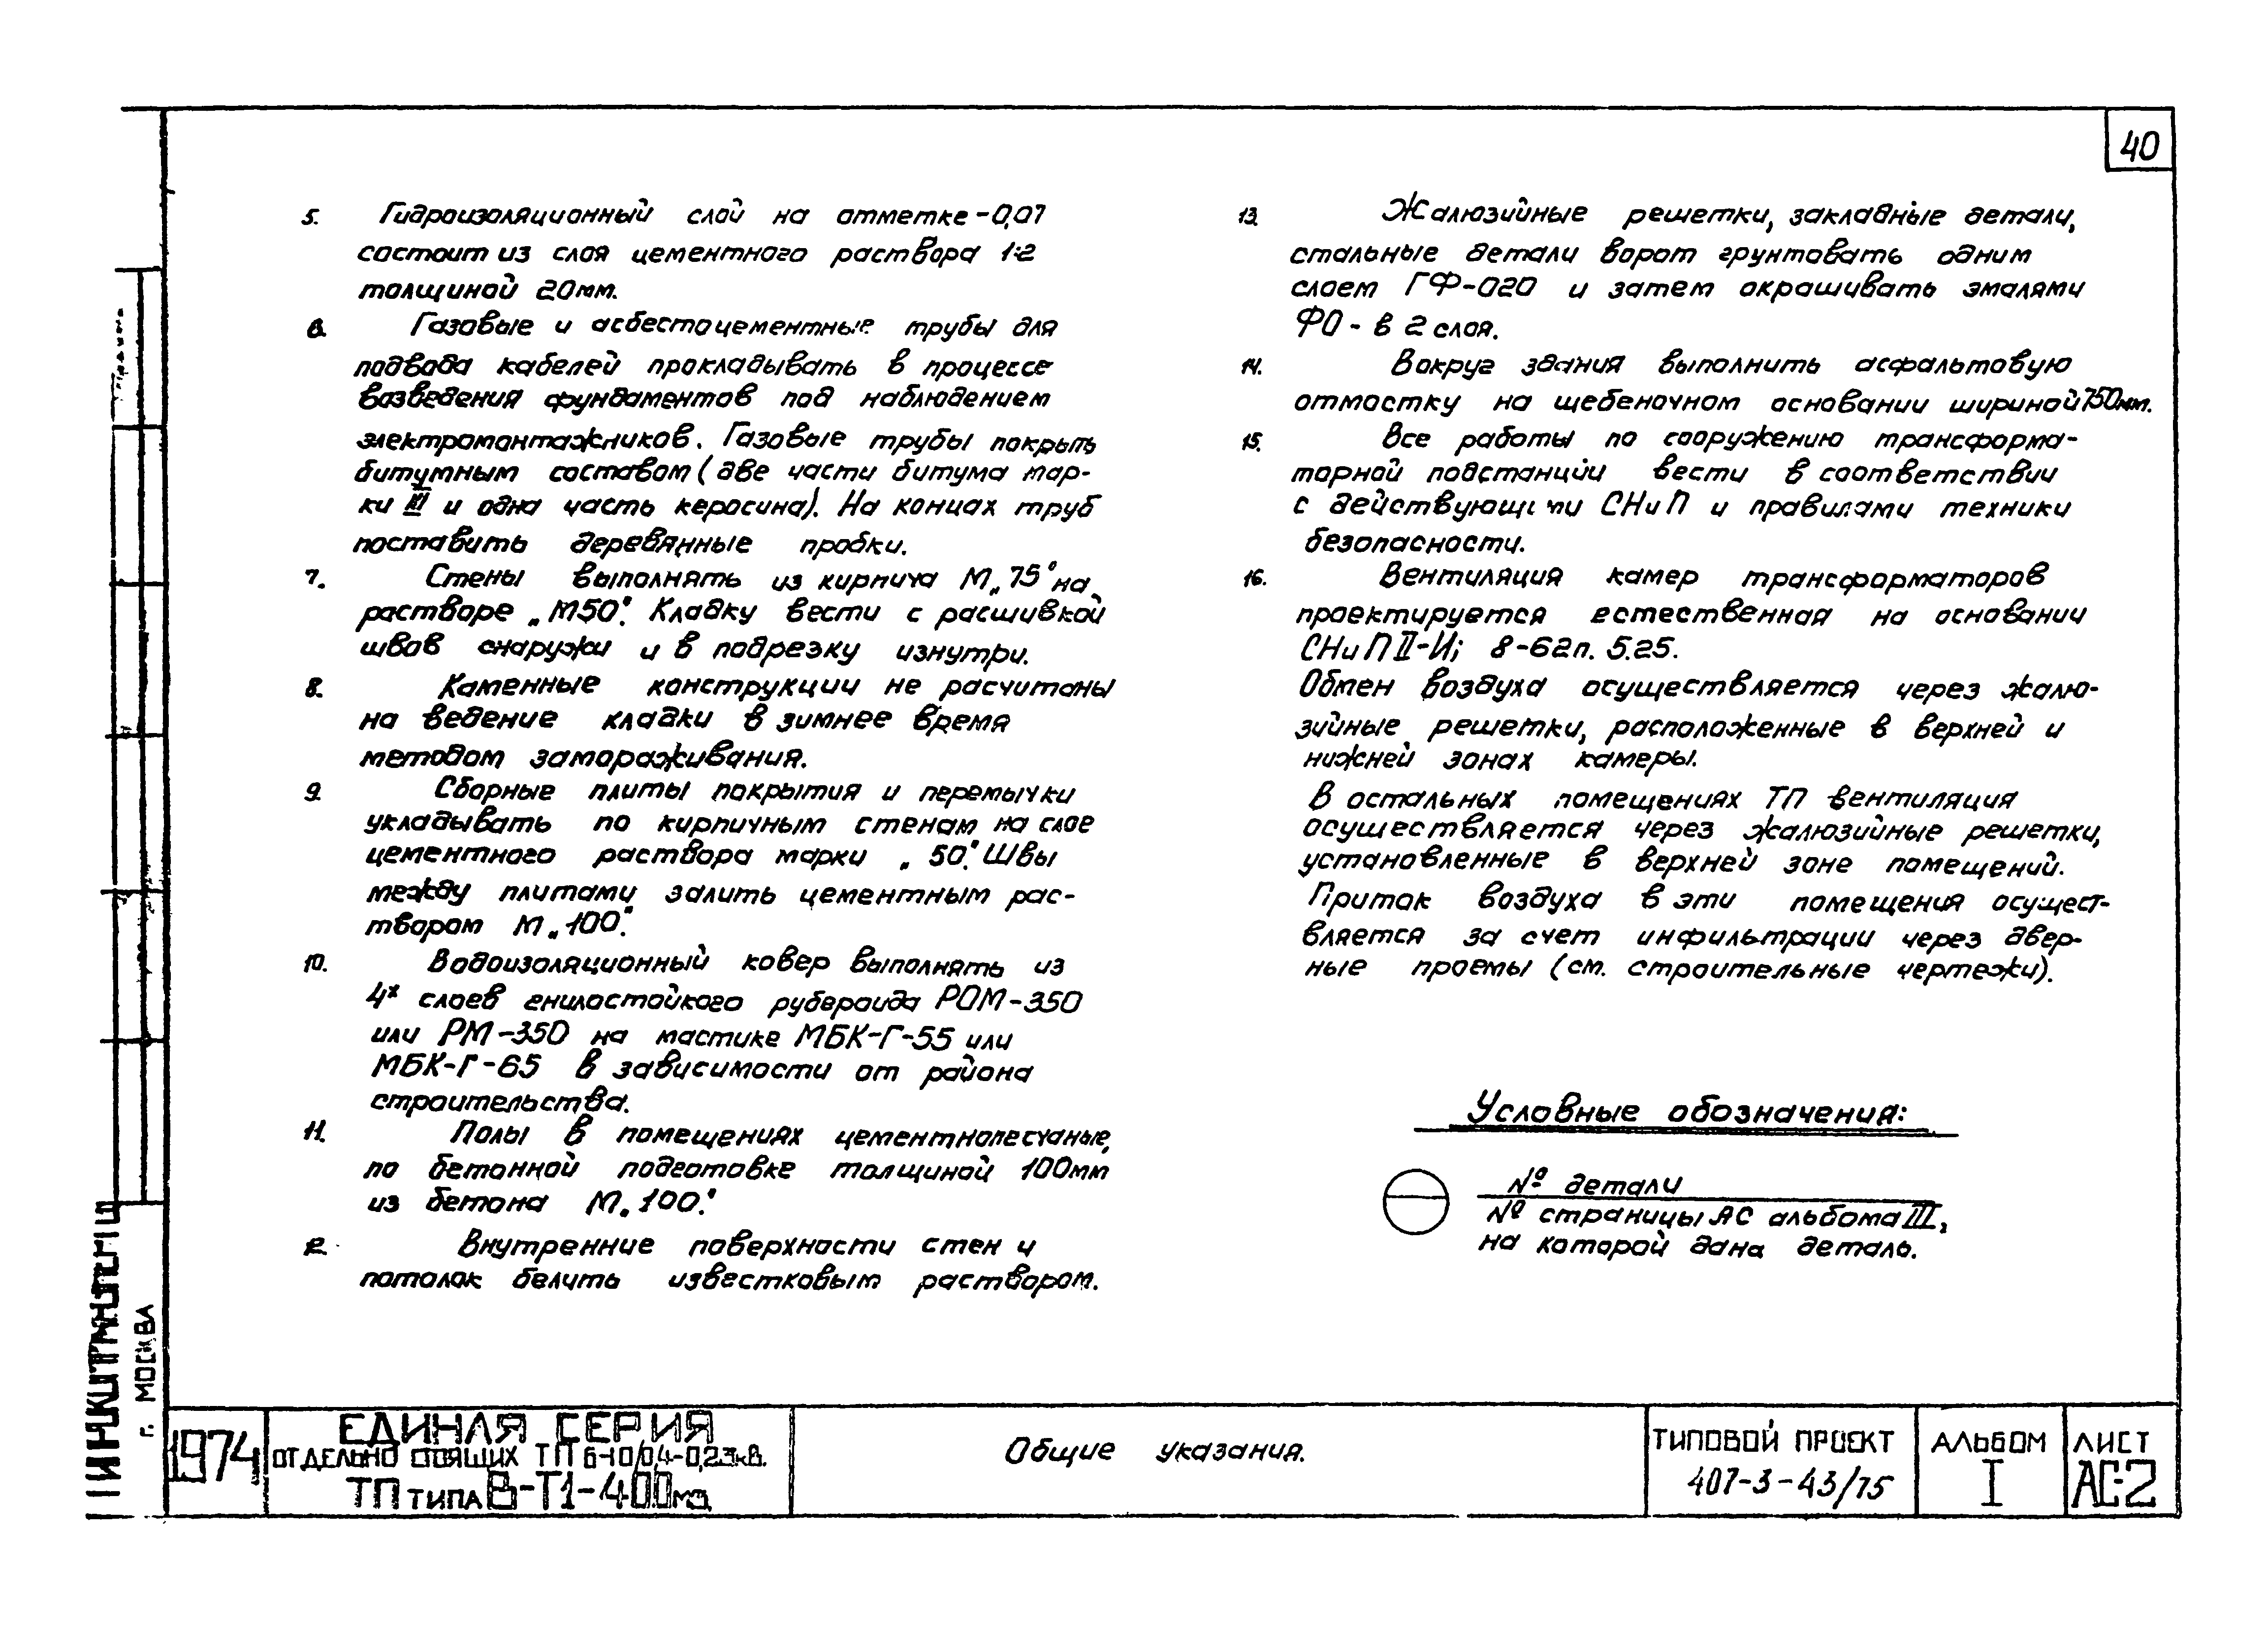 40
5. Гидроизоляционный слой на отметке -0,07
состоит из слоя цементного раствора 1:2
толщиной 20мм.
6. Газовые и асбестоцементные трубы для
подвода кабелей прокладывать в процессе
возведения фундаментов под наблюдением
электромонтажников. Газовые трубы покрыть
битумным составом (две части битума мар-
ки III и одна часть керосина). На концах труб
поставить деревянные пробки.
7. Стены выполнять из кирпича М„75" на
растворе „М50". Кладку вести с расшивкой
швов снаружи и в подрезку изнутри.
8. Каменные конструкции не расчитаны
на ведение кладки в зимнее время
методом замораживания.
9. Сборные плиты покрытия и перемычки
укладывать по кирпичным стенам на слое
цементного раствора марки „50". Швы
между плитами залить цементным рас-
твором М„100".
10. Водоизоляционный ковер выполнять из
4х слоев гнилостойкого рубероида РОМ-350
или РМ-350 на мастике МБК-Г-55 или
МБК-Г-65 в зависимости от района
строительства.
11. Полы в помещениях цементнопесчаные,
по бетонной подготовке толщиной 100мм
из бетона М„100".
12. Внутренние поверхности стен и
потолок белить известковым раствором.
13. Жалюзийные решетки, закладные детали,
стальные детали ворот грунтовать одним
слоем ГФ-020 и затем окрашивать эмалями
ФО - в 2 слоя.
14. Вокруг здания выполнить асфальтовую
отмостку на щебеночном основании шириной 750мм.
15. Все работы по сооружению трансформа-
торной подстанции вести в соответствии
с действующими СНиП и правилами техники
безопасности.
16. Вентиляция камер трансформаторов
проектируется естественная на основании
СНиП II-И; 8-62 п. 5.25.
Обмен воздуха осуществляется через жалю-
зийные решетки, расположенные в верхней и
нижней зонах камеры.
В остальных помещениях ТП вентиляция
осуществляется через жалюзийные решетки,
установленные в верхней зоне помещений.
Приток воздуха в эти помещения осущест-
вляется за счет инфильтрации через двер-
ные проемы (см. строительные чертежи).
Условные обозначения:
№ детали
№ страницы АС альбома III,
на которой дана деталь.
г. МОСКВА
1974
ЕДИНАЯ СЕРИЯ
ОТДЕЛЬНО СТОЯЩИХ ТП 6-10/0,4-0,23кВ.
ТП ТИПА В-Т1-400
Общие указания.
ТИПОВОЙ ПРОЕКТ
407-3-43/75
АЛЬБОМ
I
ЛИСТ
АС-2